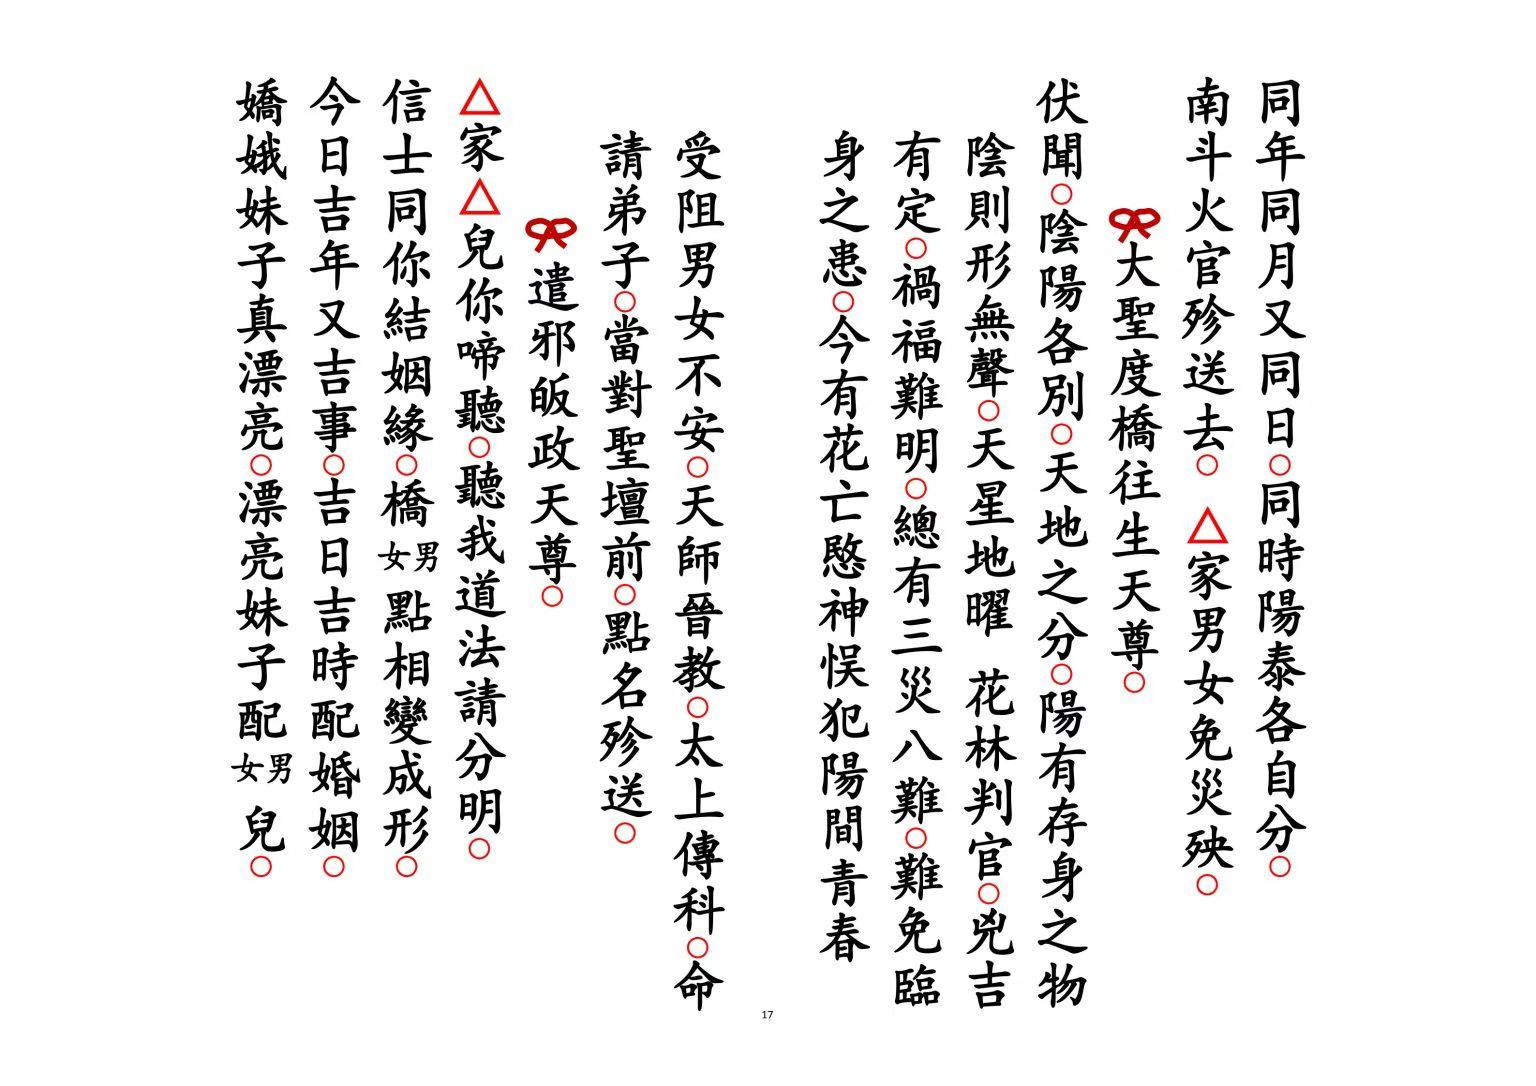 同年同月又同日○同時陽泰各自分○
南斗火官殄送去○ △家男女免災殃○
大聖度橋往生天尊○
伏聞○陰陽各別○天地之分○陽有存身之物
陰則形無聲○天星地曜 花林判官○兇吉
有定○禍福難明○總有三災八難○難免臨
身之患○今有花亡愍神悞犯陽間青春
受阻男女不安○天師晉教○太上傳科○命
請弟子○當對聖壇前○點名殄送○
遣邪皈政天尊○
△家△兒你啼聽○聽我道法請分明○
信士同你結姻緣○橋男女點相變成形○
今日吉年又吉事○吉日吉時配婚姻○
嬌娥妹子真漂亮○漂亮妹子配男女兒○
17